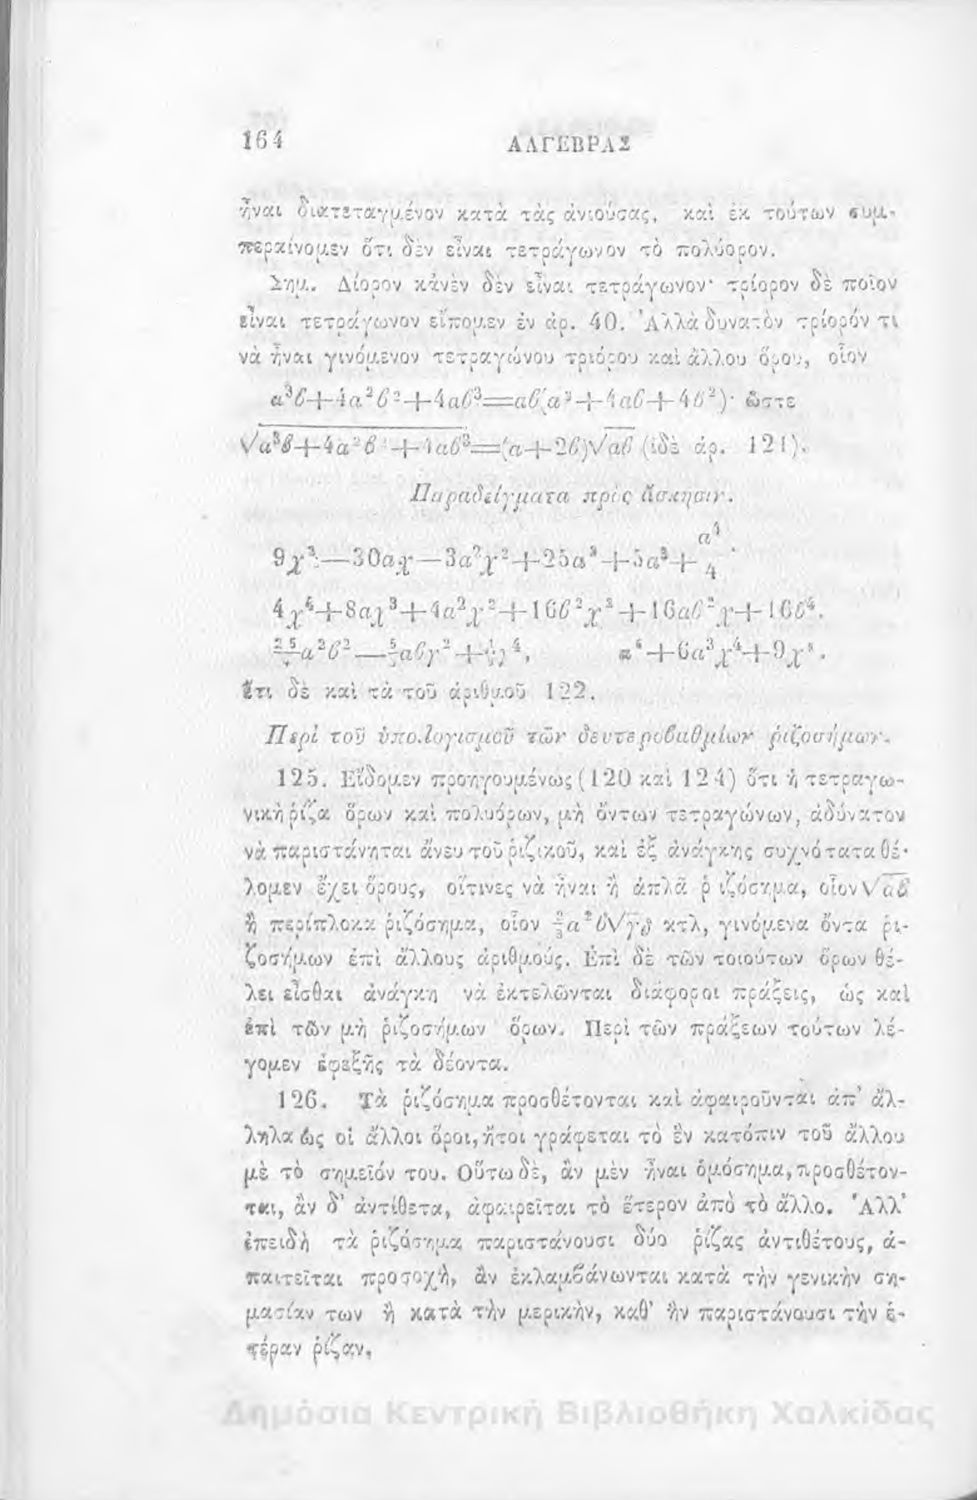 164
ΑΛΓΕΒΡΑΣ
ἦναι διατεταγμένον κατὰ τὰς ἀνιούσας, καὶ ἐκ τούτων συμ-
περαίνομεν ὅτι δὲν εἶναι τετράγωνον τὸ πολύορον.
Σημ. Δίορον κἀνὲν δὲν εἶναι τετράγωνον· τρίορον δὲ ποῖον
εἶναι τετράγωνον εἴπομεν ἐν ἀρ. 40. Ἀλλὰ δυνατὸν τρίορόν τι
νὰ ἦναι γινόμενον τετραγώνου τριόρου καὶ ἄλλου ὅρου, οἷον
α³β+4α²β²+4αβ³=αβ(α²+4αβ+4β²)· ὥστε
√α³β+4α²β²+4αβ³=(α+2β)√αβ (ἰδὲ ἀρ. 121).
Παραδείγματα πρὸς ἄσκησιν.
9χ²—30αχ—3α²χ²+25α²+5α³+α⁴/4.
4χ⁴+8αχ³+4α²χ²+16β²χ²+16αβ²χ+16β⁴.
α⁶+6α³χ⁴+9χ⁸.
Ἔτι δὲ καὶ τὰ τοῦ ἀριθμοῦ 122.
Περὶ τοῦ ὑπολογισμοῦ τῶν δευτεροβαθμίων ῥιζοσήμων.
125. Εἴδομεν προηγουμένως (120 καὶ 124) ὅτι ἡ τετραγω-
νικὴ ῥίζα ὅρων καὶ πολυόρων, μὴ ὄντων τετραγώνων, ἀδύνατον
νὰ παριστάνηται ἄνευ τοῦ ῥιζικοῦ, καὶ ἐξ ἀνάγκης συχνότατα θέ-
λομεν ἔχει ὅρους, οἵτινες νὰ ἦναι ἢ ἁπλᾶ ῥιζόσημα, οἷον √αβ
ἢ περίπλοκα ῥιζόσημα, οἷον ⅔α²β√γδ κτλ, γινόμενα ὄντα ῥι-
ζοσήμων ἐπὶ ἄλλους ἀριθμούς. Ἐπὶ δὲ τῶν τοιούτων ὅρων θέ-
λει εἶσθαι ἀνάγκη νὰ ἐκτελῶνται διάφοροι πράξεις, ὡς καὶ
ἐπὶ τῶν μὴ ῥιζοσήμων ὅρων. Περὶ τῶν πράξεων τούτων λέ-
γομεν ἐφεξῆς τὰ δέοντα.
126. Τὰ ῥιζόσημα προσθέτονται καὶ ἀφαιροῦνται ἀπ' ἄλ-
ληλα ὡς οἱ ἄλλοι ὅροι, ἤτοι γράφεται τὸ ἓν κατόπιν τοῦ ἄλλου
μὲ τὸ σημεῖόν του. Οὕτω δὲ, ἂν μὲν ἦναι ὁμόσημα, προσθέτον-
ται, ἂν δ' ἀντίθετα, ἀφαιρεῖται τὸ ἕτερον ἀπὸ τὸ ἄλλο. Ἀλλ'
ἐπειδὴ τὰ ῥιζόσημα παριστάνουσι δύο ῥίζας ἀντιθέτους, ἀ-
παιτεῖται προσοχὴ, ἂν ἐκλαμβάνωνται κατὰ τὴν γενικὴν ση-
μασίαν των ἢ κατὰ τὴν μερικὴν, καθ' ἣν παριστάνουσι τὴν ἑ-
τέραν ῥίζαν,
Δημόσια Κεντρική Βιβλιοθήκη Χαλκίδας